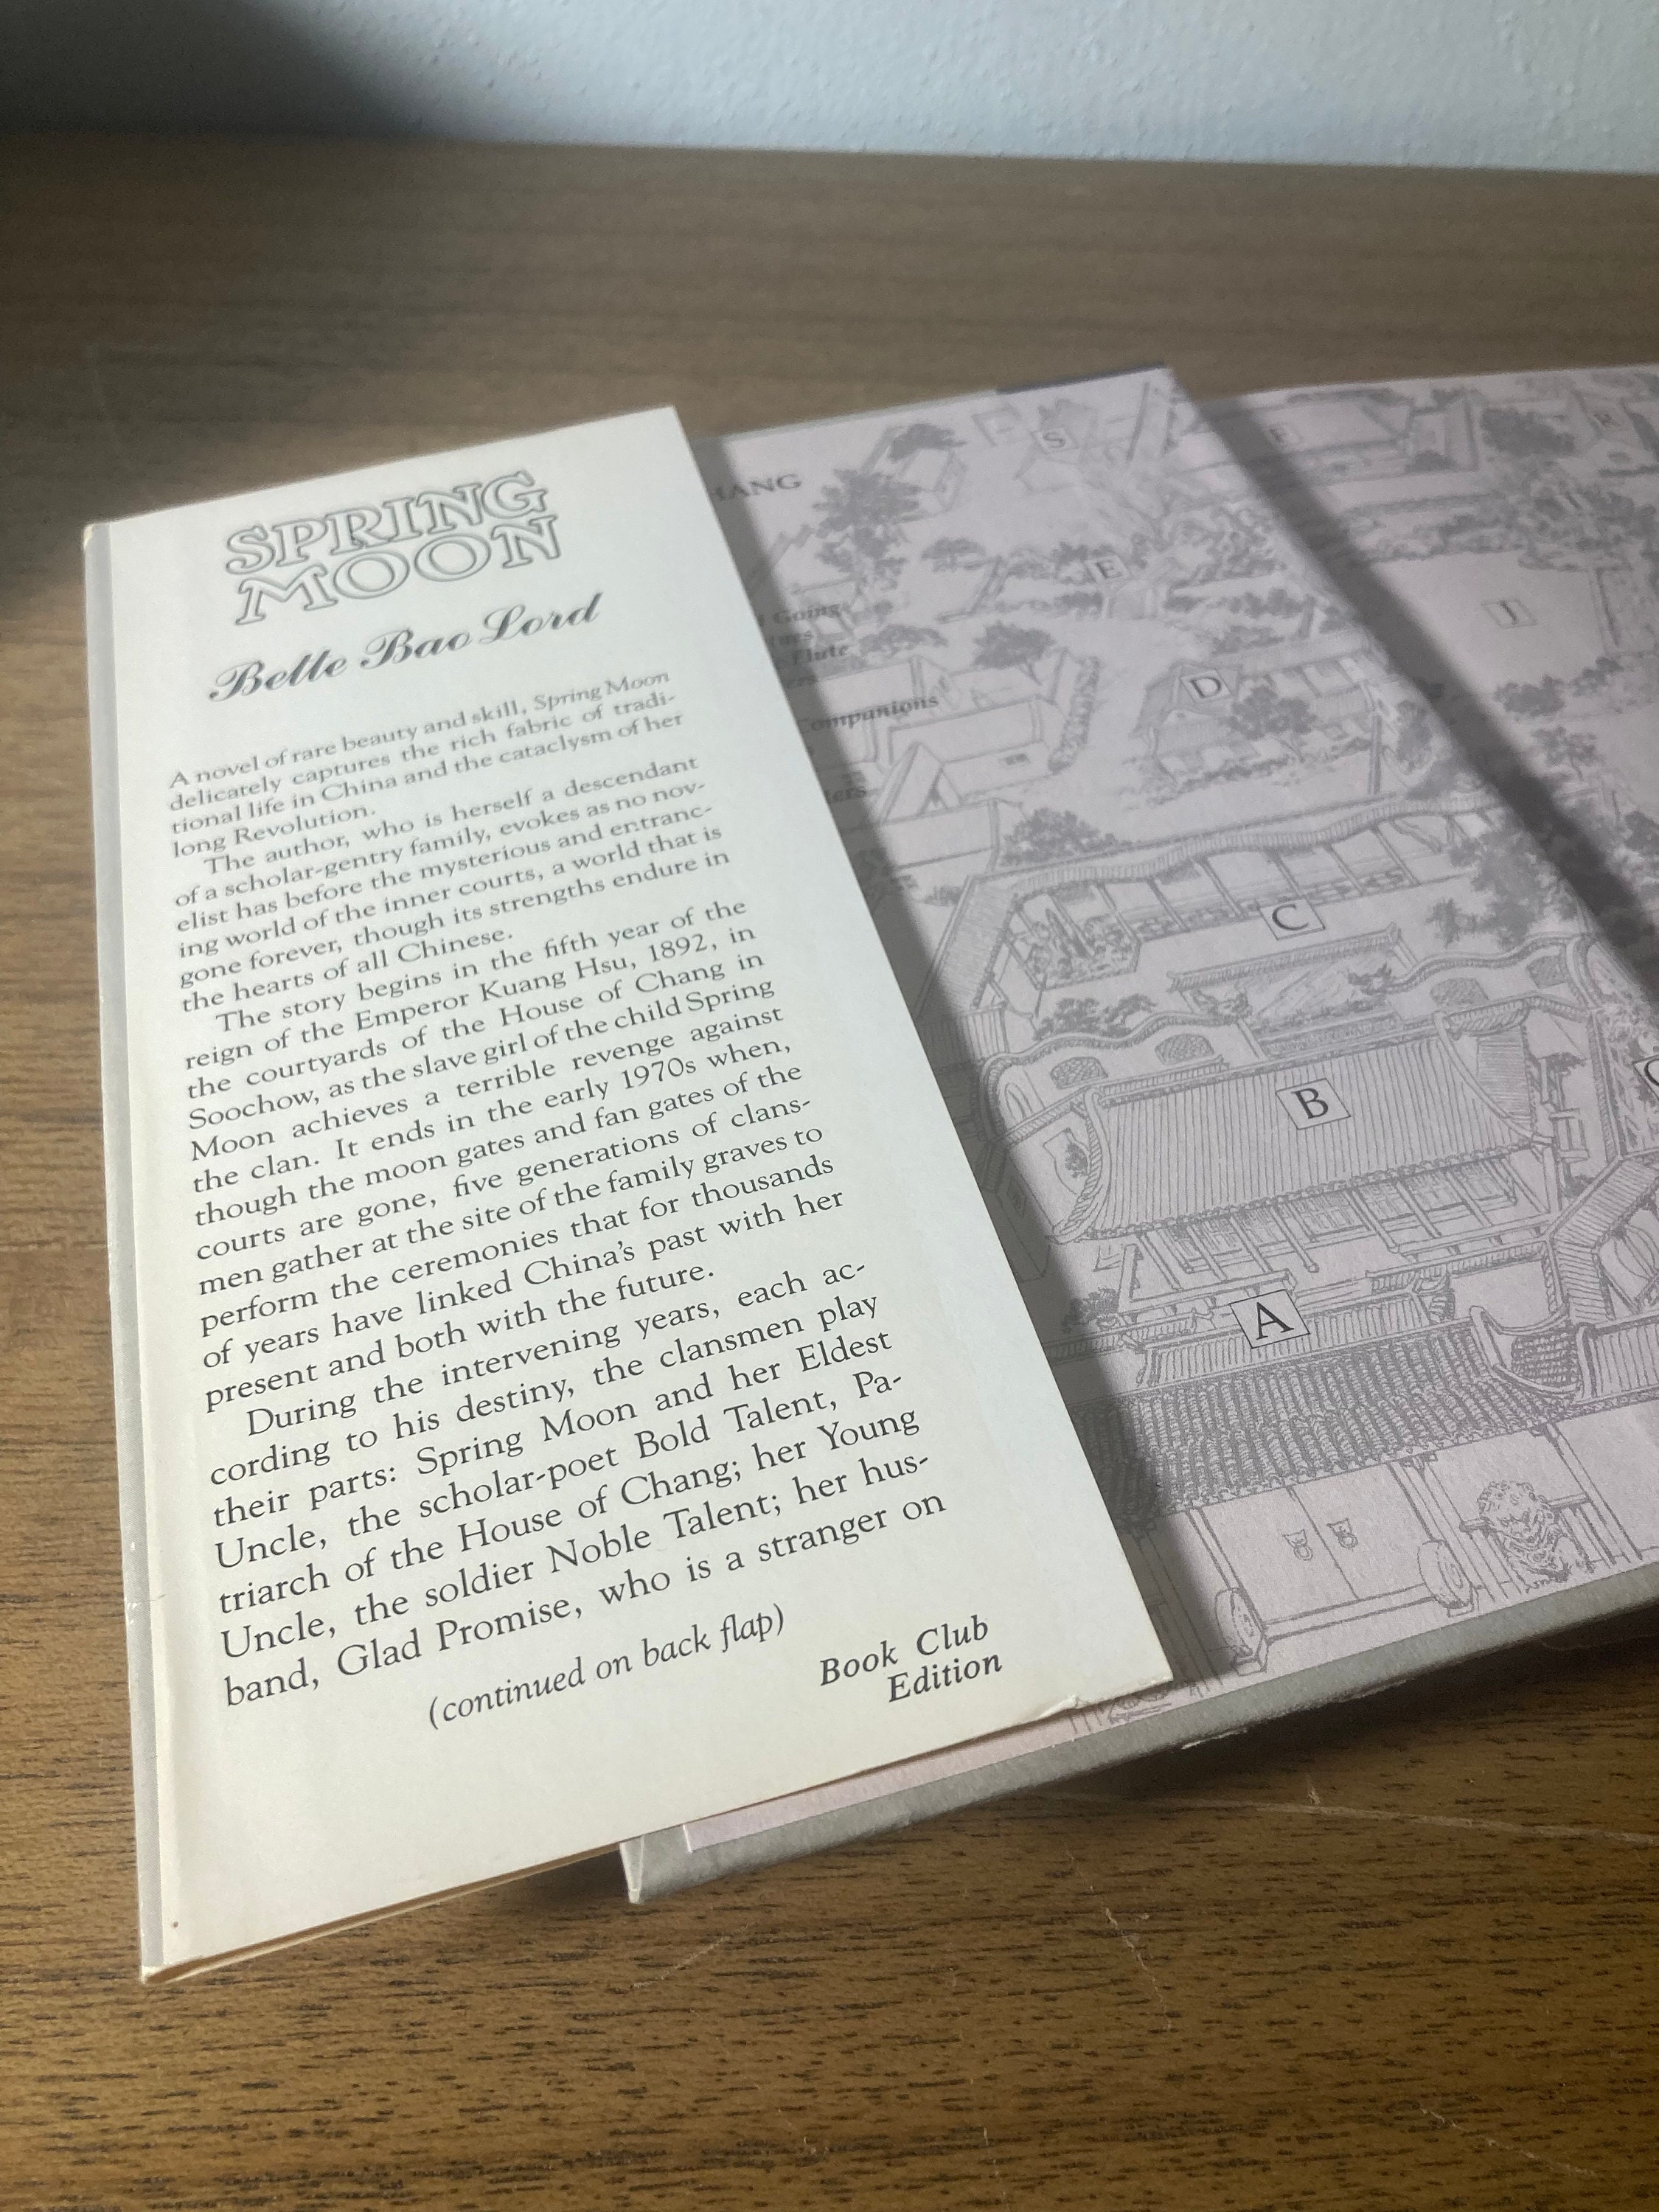 SPRING
MOON
Bette Bao Lord
A novel of rare beauty and skill, Spring Moon
delicately captures the rich fabric of tradi-
tional life in China and the cataclysm of her
long Revolution.
The author, who is herself a descendant
of a scholar-gentry family, evokes as no nov-
elist has before the mysterious and entranc-
ing world of the inner courts, a world that is
gone forever, though its strengths endure in
the hearts of all Chinese.
The story begins in the fifth year of the
reign of the Emperor Kuang Hsu, 1892, in
the courtyards of the House of Chang in
Soochow, as the slave girl of the child Spring
Moon achieves a terrible revenge against
the clan. It ends in the early 1970s when,
though the moon gates and fan gates of the
courts are gone, five generations of clans-
men gather at the site of the family graves to
perform the ceremonies that for thousands
of years have linked China's past with her
present and both with the future.
During the intervening years, each ac-
cording to his destiny, the clansmen play
their parts: Spring Moon and her Eldest
Uncle, the scholar-poet Bold Talent, Pa-
triarch of the House of Chang; her Young
Uncle, the soldier Noble Talent; her hus-
band, Glad Promise, who is a stranger on
(continued on back flap)
Book Club
Edition
HANG
Going
Flute
ompanions
S
F
R
E
J
D
C
B
A